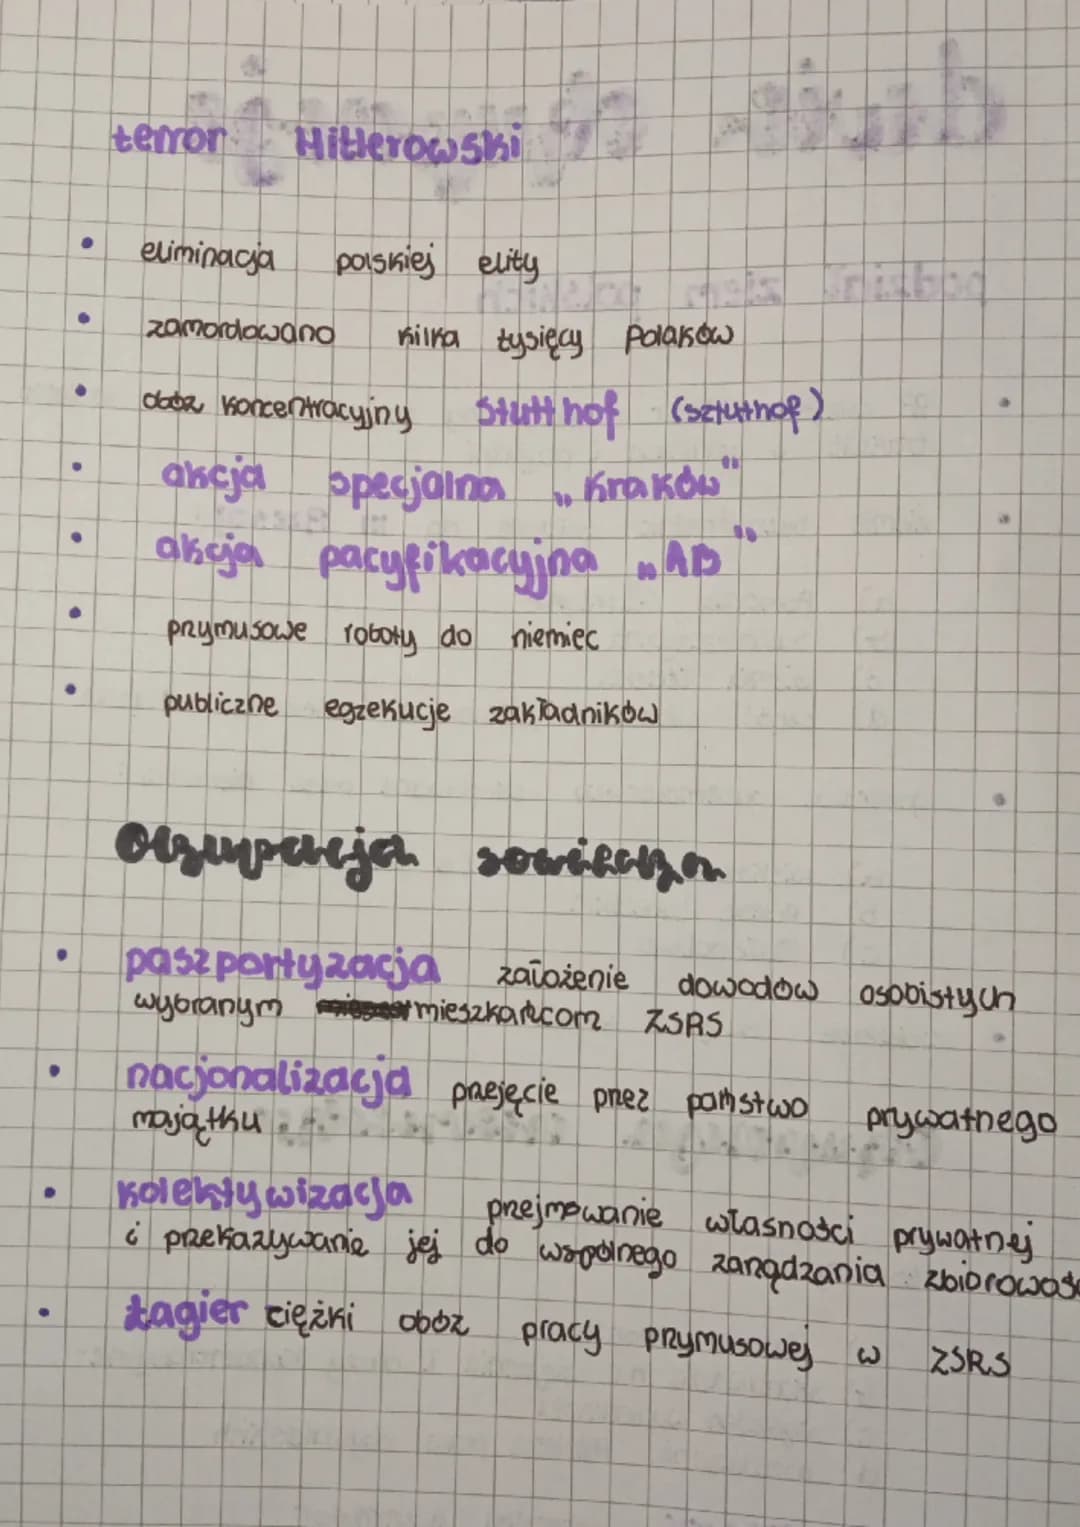 terror Hitlerowski
• eliminacja polskiej elity
• zamordowano kilka tysięcy Polaków
• obóz koncentracyjny Stutthof (sztuthof)
• akcja specjalna „Kraków"
• akcja pacyfikacyjna „AB"
• przymusowe roboty do niemiec
• publiczne egzekucje zakładników
Okupacja sowiecka
• paszportyzacja założenie dowodów osobistych
wybranym mieszkańcom ZSRS
• nacjonalizacja przejęcie przez państwo prywatnego
majątku
• kolektywizacja przejmowanie własności prywatnej
i przekazywanie jej do wspólnego zarządzania zbiorowoś
• Łagier ciężki obóz pracy przymusowej w ZSRS